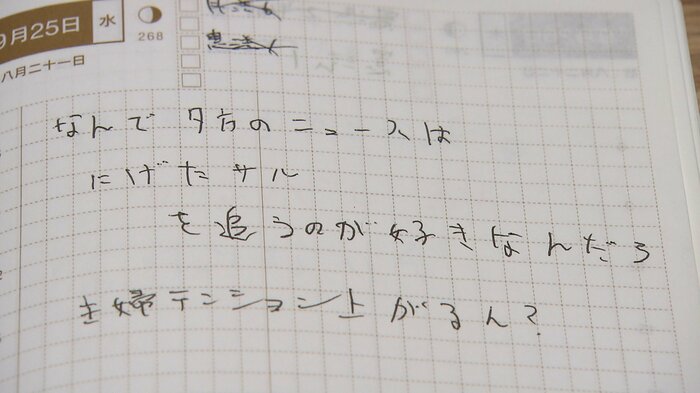 9月25日 水
268
八月二十一日
なんで夕方のニュースは
にげたサル
を追うのが好きなんだろ
主婦テンション上がるん?